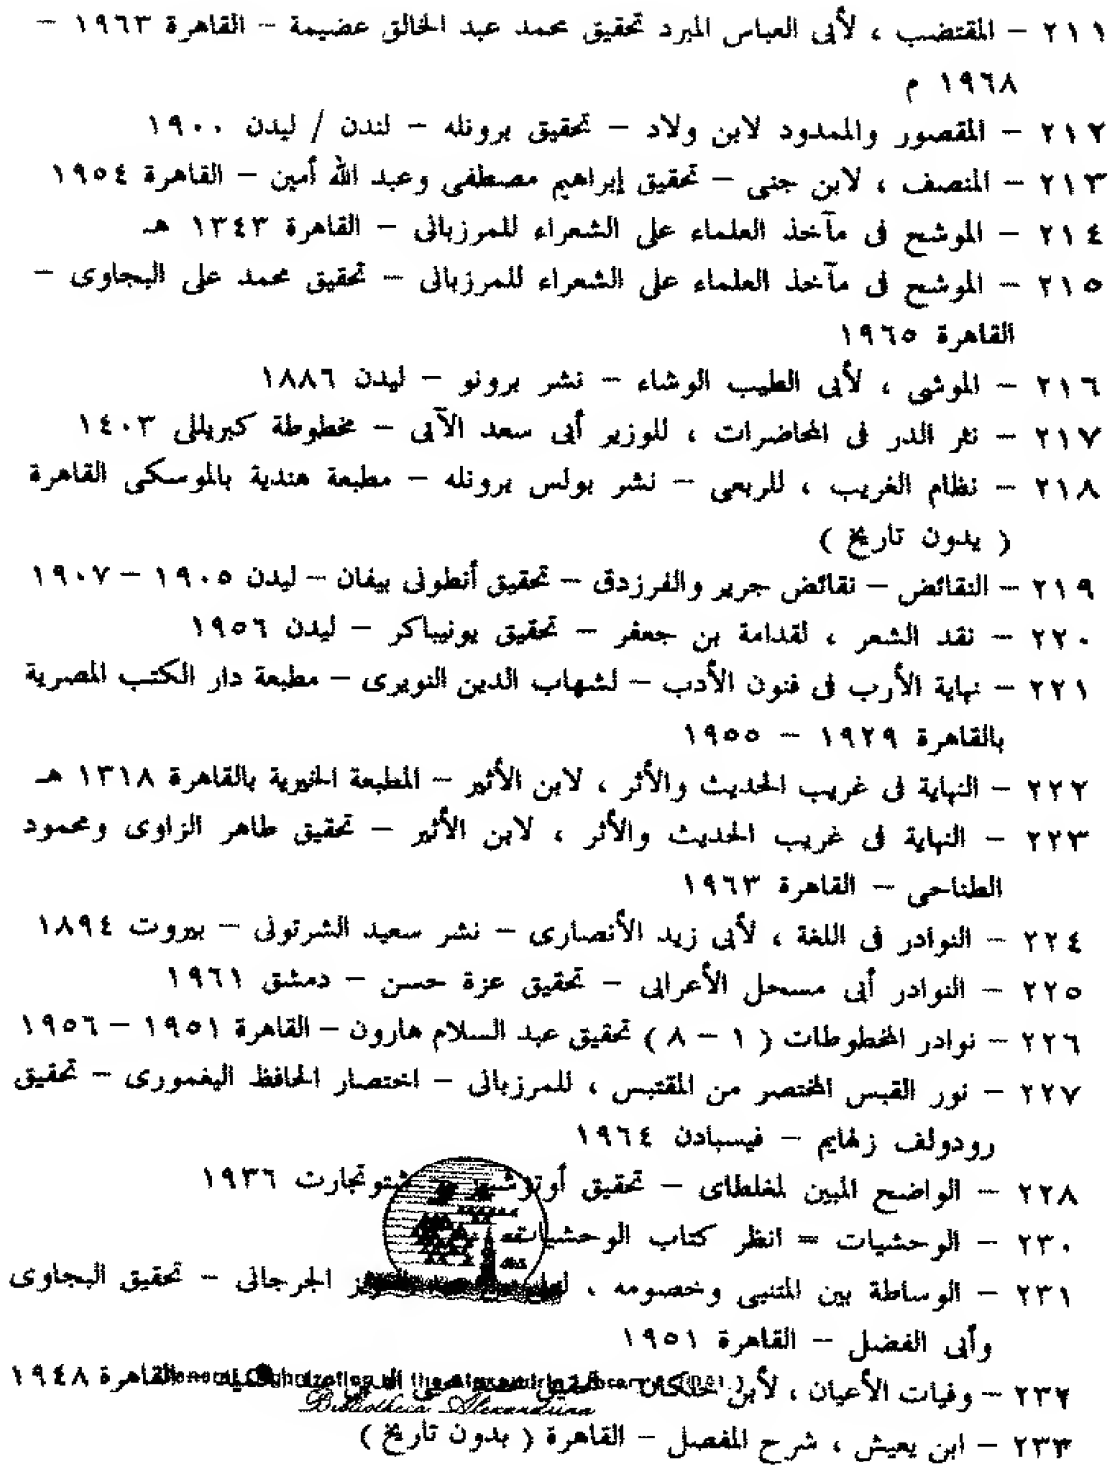 ٢١١ – المقتضب ، لأبى العباس المبرد تحقيق محمد عبد الخالق عضيمة – القاهرة ١٩٦٣ –
١٩٦٨ م
٢١٢ – المقصور والممدود لابن ولاد – تحقيق برونله – لندن / ليدن ١٩٠٠
٢١٣ – المنصف ، لابن جنى – تحقيق إبراهيم مصطفى وعبد الله أمين – القاهرة ١٩٥٤
٢١٤ – الموشح فى مآخذ العلماء على الشعراء للمرزبانى – القاهرة ١٣٤٣ هـ
٢١٥ – الموشح فى مآخذ العلماء على الشعراء للمرزبانى – تحقيق محمد على البجاوى –
القاهرة ١٩٦٥
٢١٦ – الموشى ، لأبى الطيب الوشاء – نشر برونو – ليدن ١٨٨٦
٢١٧ – نثر الدر فى المحاضرات ، للوزير أبى سعد الآبى – مخطوطة كبريللى ١٤٠٣
٢١٨ – نظام الغريب ، للربعى – نشر بولس برونله – مطبعة هندية بالموسكى القاهرة
( بدون تاريخ )
٢١٩ – النقائض – نقائض جرير والفرزدق – تحقيق أنطونى بيفان – ليدن ١٩٠٥ – ١٩٠٧
٢٢٠ – نقد الشعر ، لقدامة بن جعفر – تحقيق بونيباكر – ليدن ١٩٥٦
٢٢١ – نهاية الأرب فى فنون الأدب – لشهاب الدين النويرى – مطبعة دار الكتب المصرية
بالقاهرة ١٩٢٩ – ١٩٥٥
٢٢٢ – النهاية فى غريب الحديث والأثر ، لابن الأثير – المطبعة الخيرية بالقاهرة ١٣١٨ هـ
٢٢٣ – النهاية فى غريب الحديث والأثر ، لابن الأثير – تحقيق طاهر الزاوى ومحمود
الطناحى – القاهرة ١٩٦٣
٢٢٤ – النوادر فى اللغة ، لأبى زيد الأنصارى – نشر سعيد الشرتونى – بيروت ١٨٩٤
٢٢٥ – النوادر أبى مسحل الأعرابى – تحقيق عزة حسن – دمشق ١٩٦١
٢٢٦ – نوادر المخطوطات ( ١ – ٨ ) تحقيق عبد السلام هارون – القاهرة ١٩٥١ – ١٩٥٦
٢٢٧ – نور القبس المختصر من المقتبس ، للمرزبانى – اختصار الحافظ اليغمورى – تحقيق
رودولف زلهايم – فيسبادن ١٩٦٤
٢٢٨ – الواضح المبين لمغلطاى – تحقيق شتوتجارت ١٩٣٦
٢٣٠ – الوحشيات = انظر كتاب الوحشيات
٢٣١ – الوساطة بين المتنبى وخصومه ، الجرجانى – تحقيق البجاوى
وأبى الفضل – القاهرة ١٩٥١
٢٣٢ – وفيات الأعيان ، لأبن خلكان – القاهرة ١٩٤٨
Bibliotheca Alexandrina
٢٣٣ – ابن يعيش ، شرح المفصل – القاهرة ( بدون تاريخ )